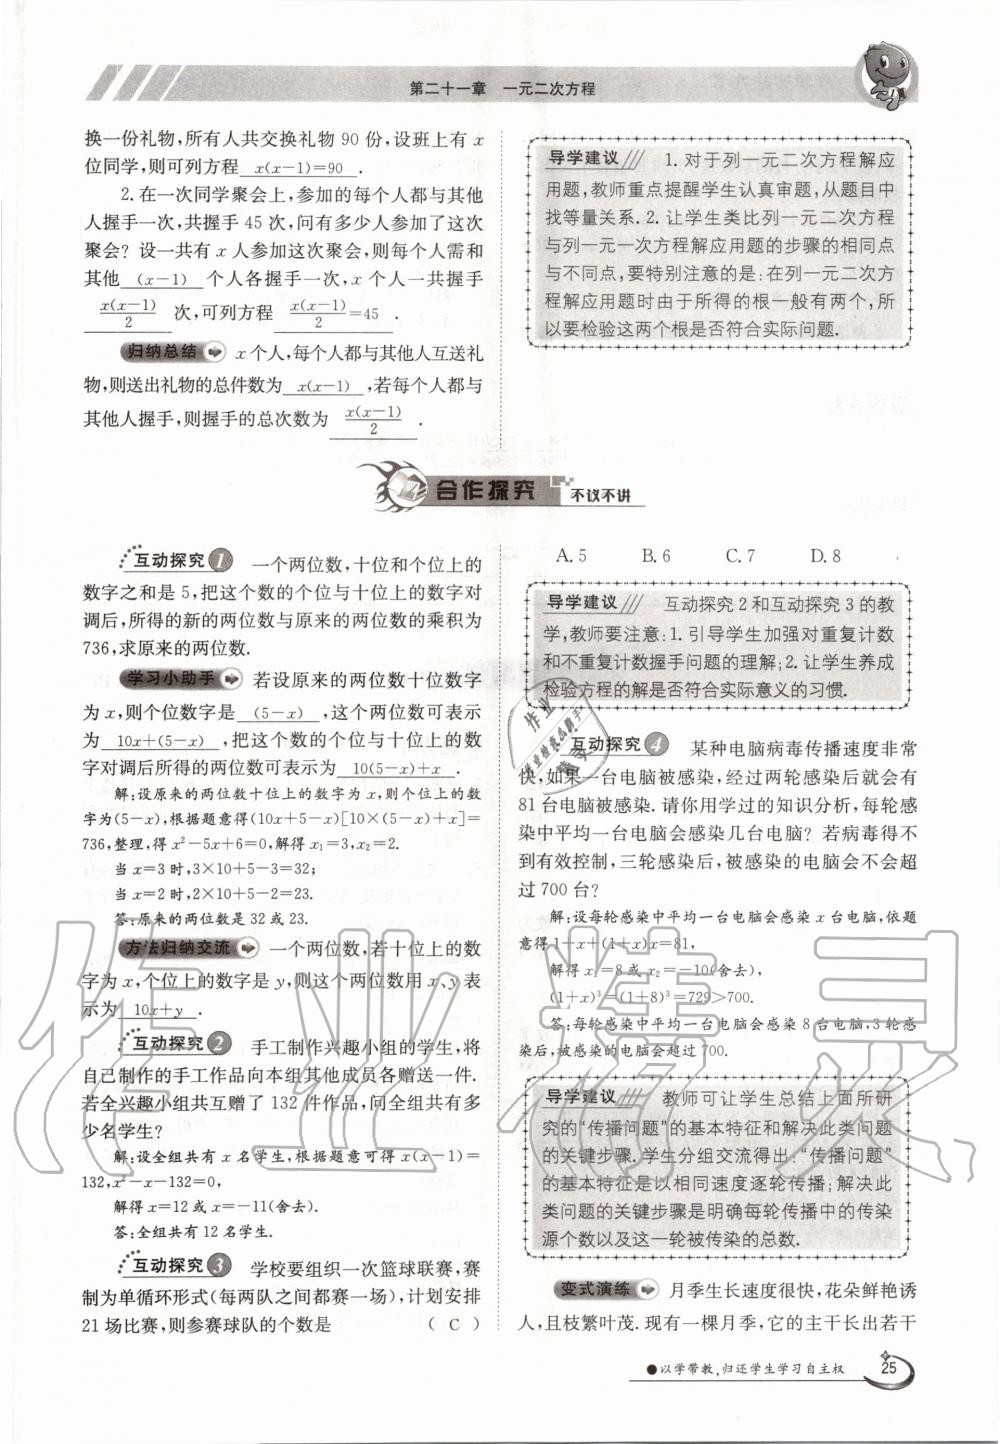 第二十一章　一元二次方程
换一份礼物,所有人共交换礼物 90 份,设班上有 x
位同学,则可列方程 x(x－1)=90 .
2. 在一次同学聚会上,参加的每个人都与其他
人握手一次,共握手 45 次,问有多少人参加了这次
聚会? 设一共有 x 人参加这次聚会,则每个人需和
其他 (x－1) 个人各握手一次,x 个人一共握手
x(x－1)/2 次,可列方程 x(x－1)/2=45 .
归纳总结 x 个人,每个人都与其他人互送礼
物,则送出礼物的总件数为 x(x－1) ,若每个人都与
其他人握手,则握手的总次数为 x(x－1)/2 .
导学建议 1. 对于列一元二次方程解应
用题,教师重点提醒学生认真审题,从题目中
找等量关系. 2. 让学生类比列一元二次方程
与列一元一次方程解应用题的步骤的相同点
与不同点,要特别注意的是:在列一元二次方
程解应用题时由于所得的根一般有两个,所
以要检验这两个根是否符合实际问题.
合作探究 不议不讲
互动探究 1 一个两位数,十位和个位上的
数字之和是 5,把这个数的个位与十位上的数字对
调后,所得的新的两位数与原来的两位数的乘积为
736,求原来的两位数.
学习小助手 若设原来的两位数十位数字
为 x,则个位数字是 (5－x) ,这个两位数可表示
为 10x+(5－x) ,把这个数的个位与十位上的数
字对调后所得的两位数可表示为 10(5－x)+x .
解:设原来的两位数十位上的数字为 x,则个位上的数
字为(5－x),根据题意得(10x+5－x)[10×(5－x)+x]=
736,整理,得 x²－5x+6=0,解得 x₁=3,x₂=2.
当 x=3 时,3×10+5－3=32;
当 x=2 时,2×10+5－2=23.
答:原来的两位数是 32 或 23.
方法归纳交流 一个两位数,若十位上的数
字为 x,个位上的数字是 y,则这个两位数用 x、y 表
示为 10x+y .
互动探究 2 手工制作兴趣小组的学生,将
自己制作的手工作品向本组其他成员各赠送一件.
若全兴趣小组共互赠了 132 件作品,问全组共有多
少名学生?
解:设全组共有 x 名学生,根据题意可得 x(x－1)=
132,x²－x－132=0,
解得 x=12 或 x=－11(舍去).
答:全组共有 12 名学生.
互动探究 3 学校要组织一次篮球联赛,赛
制为单循环形式(每两队之间都赛一场),计划安排
21 场比赛,则参赛球队的个数是 （ C ）
A. 5　B. 6　C. 7　D. 8
导学建议 互动探究 2 和互动探究 3 的教
学,教师要注意:1. 引导学生加强对重复计数
和不重复计数握手问题的理解;2. 让学生养成
检验方程的解是否符合实际意义的习惯.
互动探究 4 某种电脑病毒传播速度非常
快,如果一台电脑被感染,经过两轮感染后就会有
81 台电脑被感染. 请你用学过的知识分析,每轮感
染中平均一台电脑会感染几台电脑? 若病毒得不
到有效控制,三轮感染后,被感染的电脑会不会超
过 700 台?
解:设每轮感染中平均一台电脑会感染 x 台电脑,依题
意得 1+x+(1+x)x=81,
解得 x₁=8 或 x₂=－10(舍去),
(1+x)³=(1+8)³=729>700.
答:每轮感染中平均一台电脑会感染 8 台电脑,3 轮感
染后,被感染的电脑会超过 700.
导学建议 教师可让学生总结上面所研
究的“传播问题”的基本特征和解决此类问题
的关键步骤. 学生分组交流得出:“传播问题”
的基本特征是以相同速度逐轮传播;解决此
类问题的关键步骤是明确每轮传播中的传染
源个数以及这一轮被传染的总数.
变式演练 月季生长速度很快,花朵鲜艳诱
人,且枝繁叶茂. 现有一棵月季,它的主干长出若干
●以学带教,归还学生学习自主权
25
作业精灵